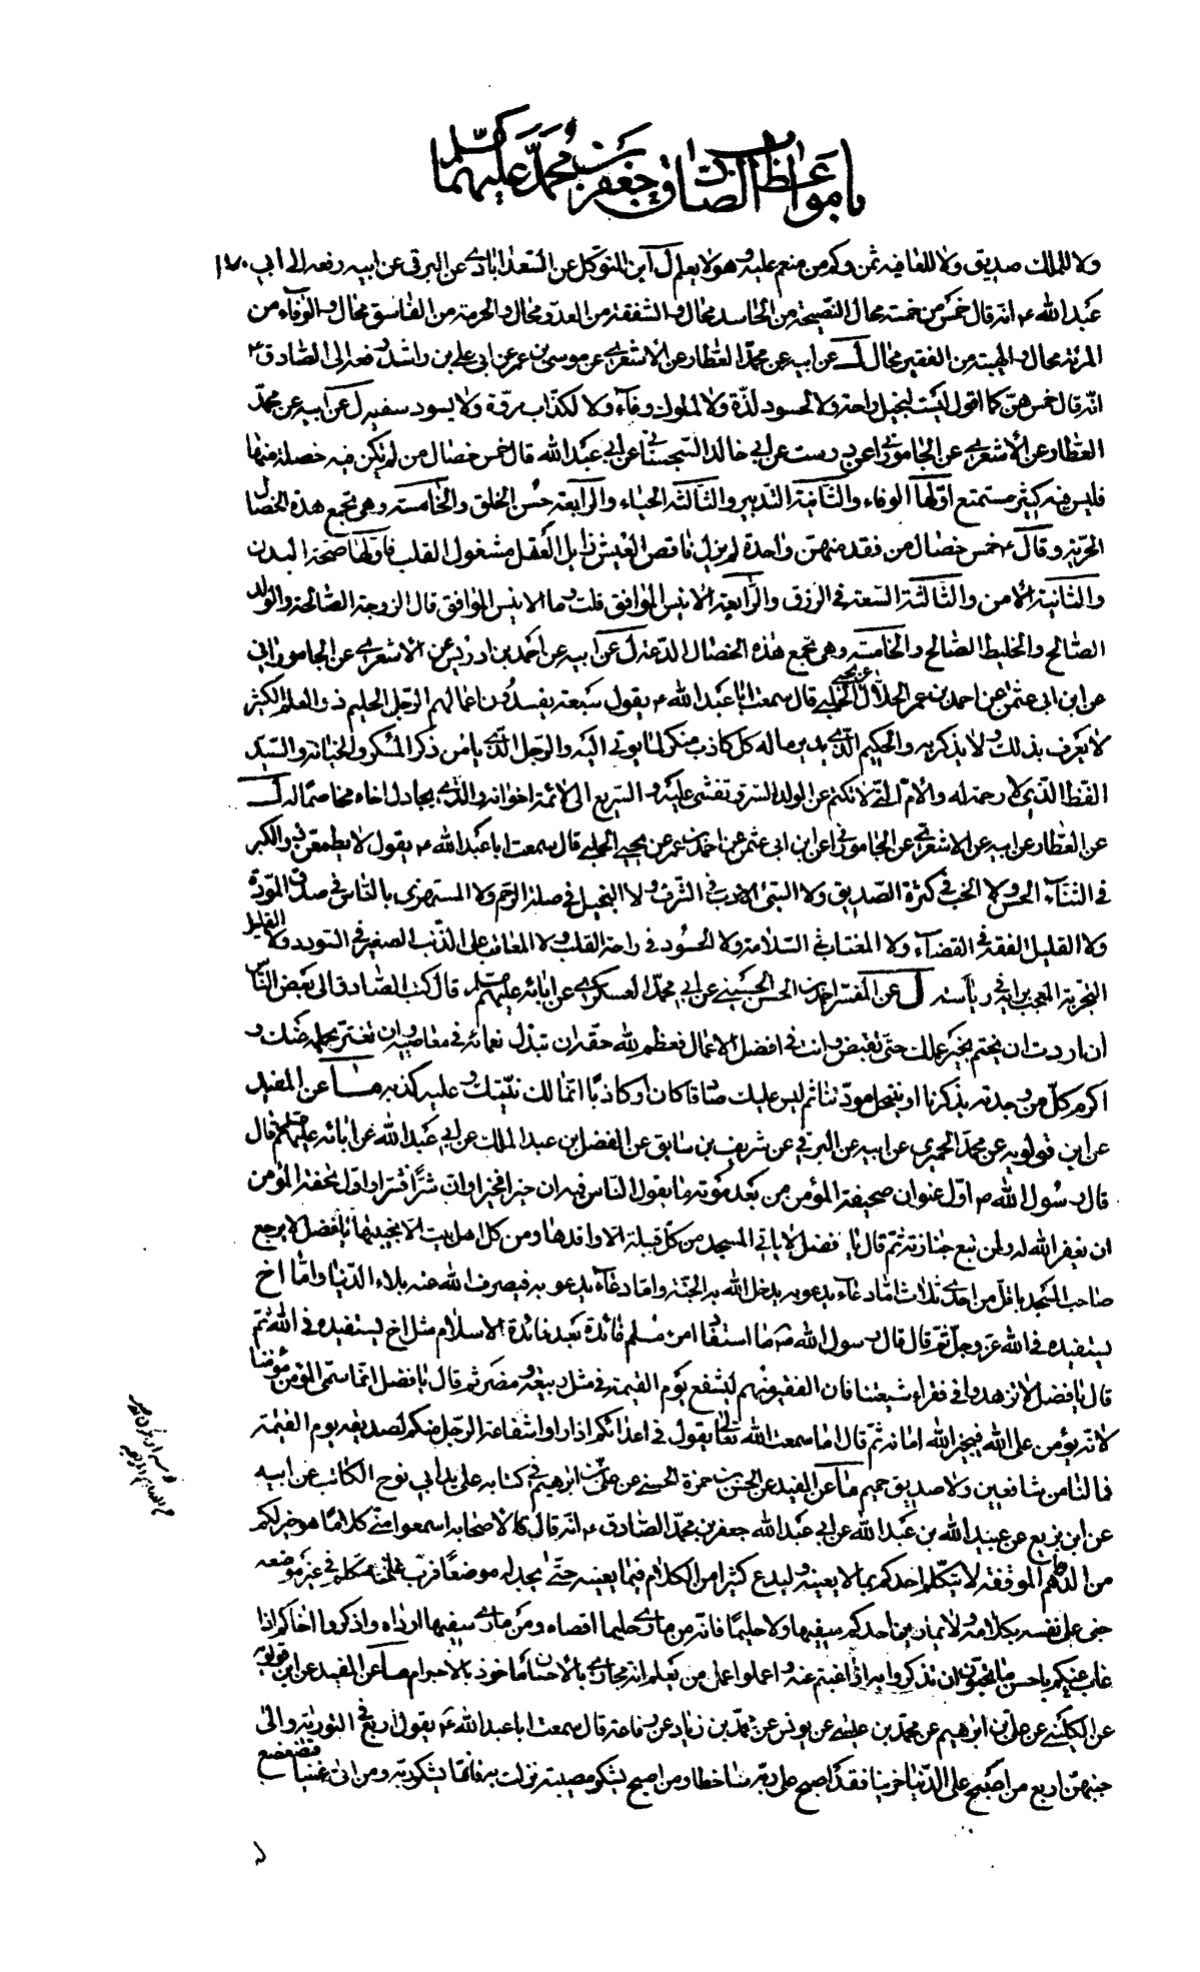 باب مواعظ الصادق جعفر بن محمد عليهما السلام
ولا للملك صديق ولا للعافية ثمن وكم من منعم عليه وهو لا يعلم ل ابن المتوكل عن السعدابادي عن البرقي عن ابيه رفعه الى ابي ١٧٠
عبد الله ع انه قال خمس من خمسة محال النصيحة من الحاسد محال والشفقة من العدو محال والحرمة من الفاسق محال والوفاء من
المرئة محال والهيبة من الفقير محال ل عن ابيه عن محمد العطار عن الاشعري عن موسى بن عمر عن ابي علي بن راشد رفعه الى الصادق ع
انه قال خمس هن كما اقول ليست لبخيل راحة ولا لحسود لذة ولا لملوك وفاء ولا لكذاب مروة ولا يسود سفيه ل عن ابيه عن محمد
العطار عن الأشعري عن الجاموراني عن درست عن ابي خالد السجستاني عن ابي عبد الله قال خمس خصال من لم تكن فيه خصلة منها
فليس فيه كثير مستمتع اولها الوفاء والثانية التدبير والثالثة الحياء والرابعة حسن الخلق والخامسة وهي تجمع هذه الخصال
الحرية وقال ع خمس خصال من فقد منهن واحدة لم يزل ناقص العيش زايل العقل مشغول القلب فاولها صحة البدن
والثانية الأمن والثالثة السعة في الرزق والرابعة الانيس الموافق قلت وما الانيس الموافق قال الزوجة الصالحة والولد
الصالح والخليط الصالح والخامسة وهي تجمع هذه الخصال الدعة ل عن ابيه عن احمد بن ادريس عن الاشعري عن الجاموراني
عن ابن ابي عثمن عن احمد بن عمر الحلال عن يحيى الحلبي قال سمعت ابا عبد الله ع يقول سبعة يفسدون اعمالهم الرجل الحليم ذو العلم الكثير
لا يعرف بذلك ولا يذكر به والحكيم الذي يدين ماله كل كاذب منكر لما يؤتى اليه والرجل الذي يامن ذا المكر والخيانة والسيد
الفظ الذي لا رحمة له والأم التي لا تكتم عن الولد السر وتفشي عليه والسريع الى لائمة اخوانه والذي يجادل اخاه مخاصما له ل
عن العطار عن ابيه عن الاشعري عن الجاموراني عن ابن ابي عثمن عن احمد بن عمر عن يحيى الحلبي قال سمعت ابا عبد الله ع يقول لا يطمعن ذو الكبر
في الثناء الحسن ولا الخب في كثرة الصديق ولا السيئ الادب في الشرف ولا البخيل في صلة الرحم ولا المستهزئ بالناس في صدق المودة
ولا القليل الفقه في القضاء ولا المغتاب في السلامة ولا الحسود في راحة القلب ولا المعاقب على الذنب الصغير في السودد ولا القليل
التجربة المعجب برايه في رياسة ل عن المفسر احمد بن الحسن الحسيني عن ابي محمد العسكري عن ابائه عليهم السلام قال كتب الصادق الى بعض الناس
ان اردت ان يختم بخير عملك حتى تقبض وانت في افضل الاعمال فعظم لله حقه ان تبذل نعمائه في معاصيه وان تغتر بحلمه عنك و
اكرم كل من وجدته يذكرنا او ينتحل مودتنا ثم ليس عليك صادقا كان او كاذبا انما لك نيتك وعليه كذبه ما عن المفيد
عن ابن قولويه عن محمد الحميري عن ابيه عن البرقي عن شريف بن سابق عن الفضل بن عبد الملك عن ابي عبد الله عن ابائه عليهم السلام قال
قال رسول الله ص اول عنوان صحيفة المؤمن من بعد موته ما يقول الناس فيه ان خيرا فخيرا وان شرا فشرا واول تحفة المؤمن
ان يغفر الله له ولمن تبع جنازته ثم قال يا فضل لا ياتي المسجد من كل قبيلة الا وافدها ومن كل اهل بيت الا نجيبها يا فضل لا يرجع
صاحب المسجد باقل من احدى ثلاث اما دعاء يدعو به يدخل الله به الجنة واما دعاء يدعو به فيصرف الله عنه بلاء الدنيا واما اخ
يستفيده في الله عز وجل ثم قال قال رسول الله ص ما استفاد امرؤ مسلم فائدة بعد فائدة الاسلام مثل اخ يستفيده في الله ثم
قال يا فضل لا تزهدوا في فقراء شيعتنا فان الفقير منهم ليشفع يوم القيمة في مثل ربيعة ومضر ثم قال يا فضل انما سمي المؤمن مؤمنا
لانه يؤمن على الله فيجيز الله امانه ثم قال اما سمعت الله تعالى يقول في اعدائكم اذا راوا شفاعة الرجل منكم لصديقه يوم القيمة
فما لنا من شافعين ولا صديق حميم ما عن المفيد عن الحسن بن حمزة الحسني عن علي بن ابرهيم في كتابه على يد ابي نوح الكاتب عن ابيه
عن ابن بزيع عن عبيد الله بن عبد الله عن ابي عبد الله جعفر بن محمد الصادق ع انه قال لاصحابه اسمعوا مني كلاما هو خير لكم
من الدهم الموقفة لا يتكلم احدكم بما لا يعنيه وليدع كثيرا من الكلام فيما يعنيه حتى يجد له موضعا فرب متكلم في غير موضعه
جنى على نفسه بكلامه ولا يمارين احدكم سفيها ولا حليما فانه من مارى حليما اقصاه ومن مارى سفيها ارداه واذكروا اخاكم اذا
غاب عنكم باحسن ما تحبون ان تذكروا به اذا غبتم عنه واعملوا عمل من يعلم انه مجازى بالاحسان ماخوذ بالاجرام ما عن المفيد عن ابن قولويه
عن الكليني عن علي بن ابرهيم عن محمد بن عيسى عن يونس عن محمد بن زياد عن رفاعة قال سمعت ابا عبد الله ع يقول اربع في التورية والى
جنبهن اربع من اصبح على الدنيا حزينا فقد اصبح على ربه ساخطا ومن اصبح يشكو مصيبة نزلت به فانما يشكو ربه ومن اتى غنيا فتضعضع
له